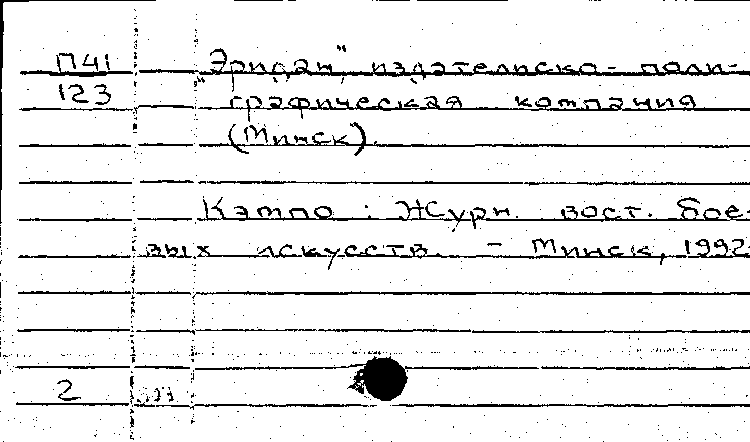 П41 "Эридан", издательско-поли-
123 графическая компания
(Минск).
Кэмпо : Журн. вост. бое-
вых искусств. - Минск, 1992
2